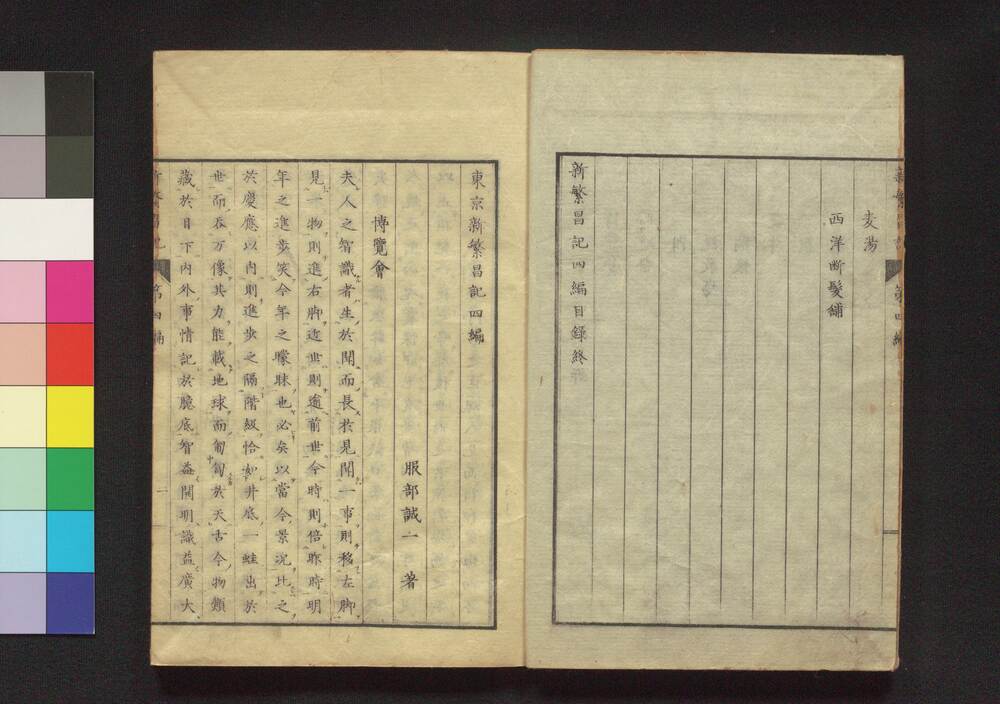 麦湯
西洋断髪舗
新繁昌記四編目録終
東京新繁昌記四編
服部誠一 著
博覧會
夫人之智識者生於聞而長於見聞一事則移左脚
見一物則進右脚近世則逾前世今時則倍昨時明
年之進歩笑今年之曚昧也必矣以當今景况比之
於慶應以内則進歩之隔階級恰如井底一蛙出於
世而呑万像其力能載地球而匍匐於天古今物類
藏於目下内外事情記於腕底智益開明識益廣大
第四編
一